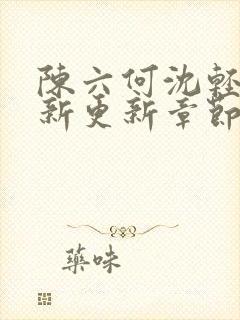 陳六何沈輕
新更新章節
藥味